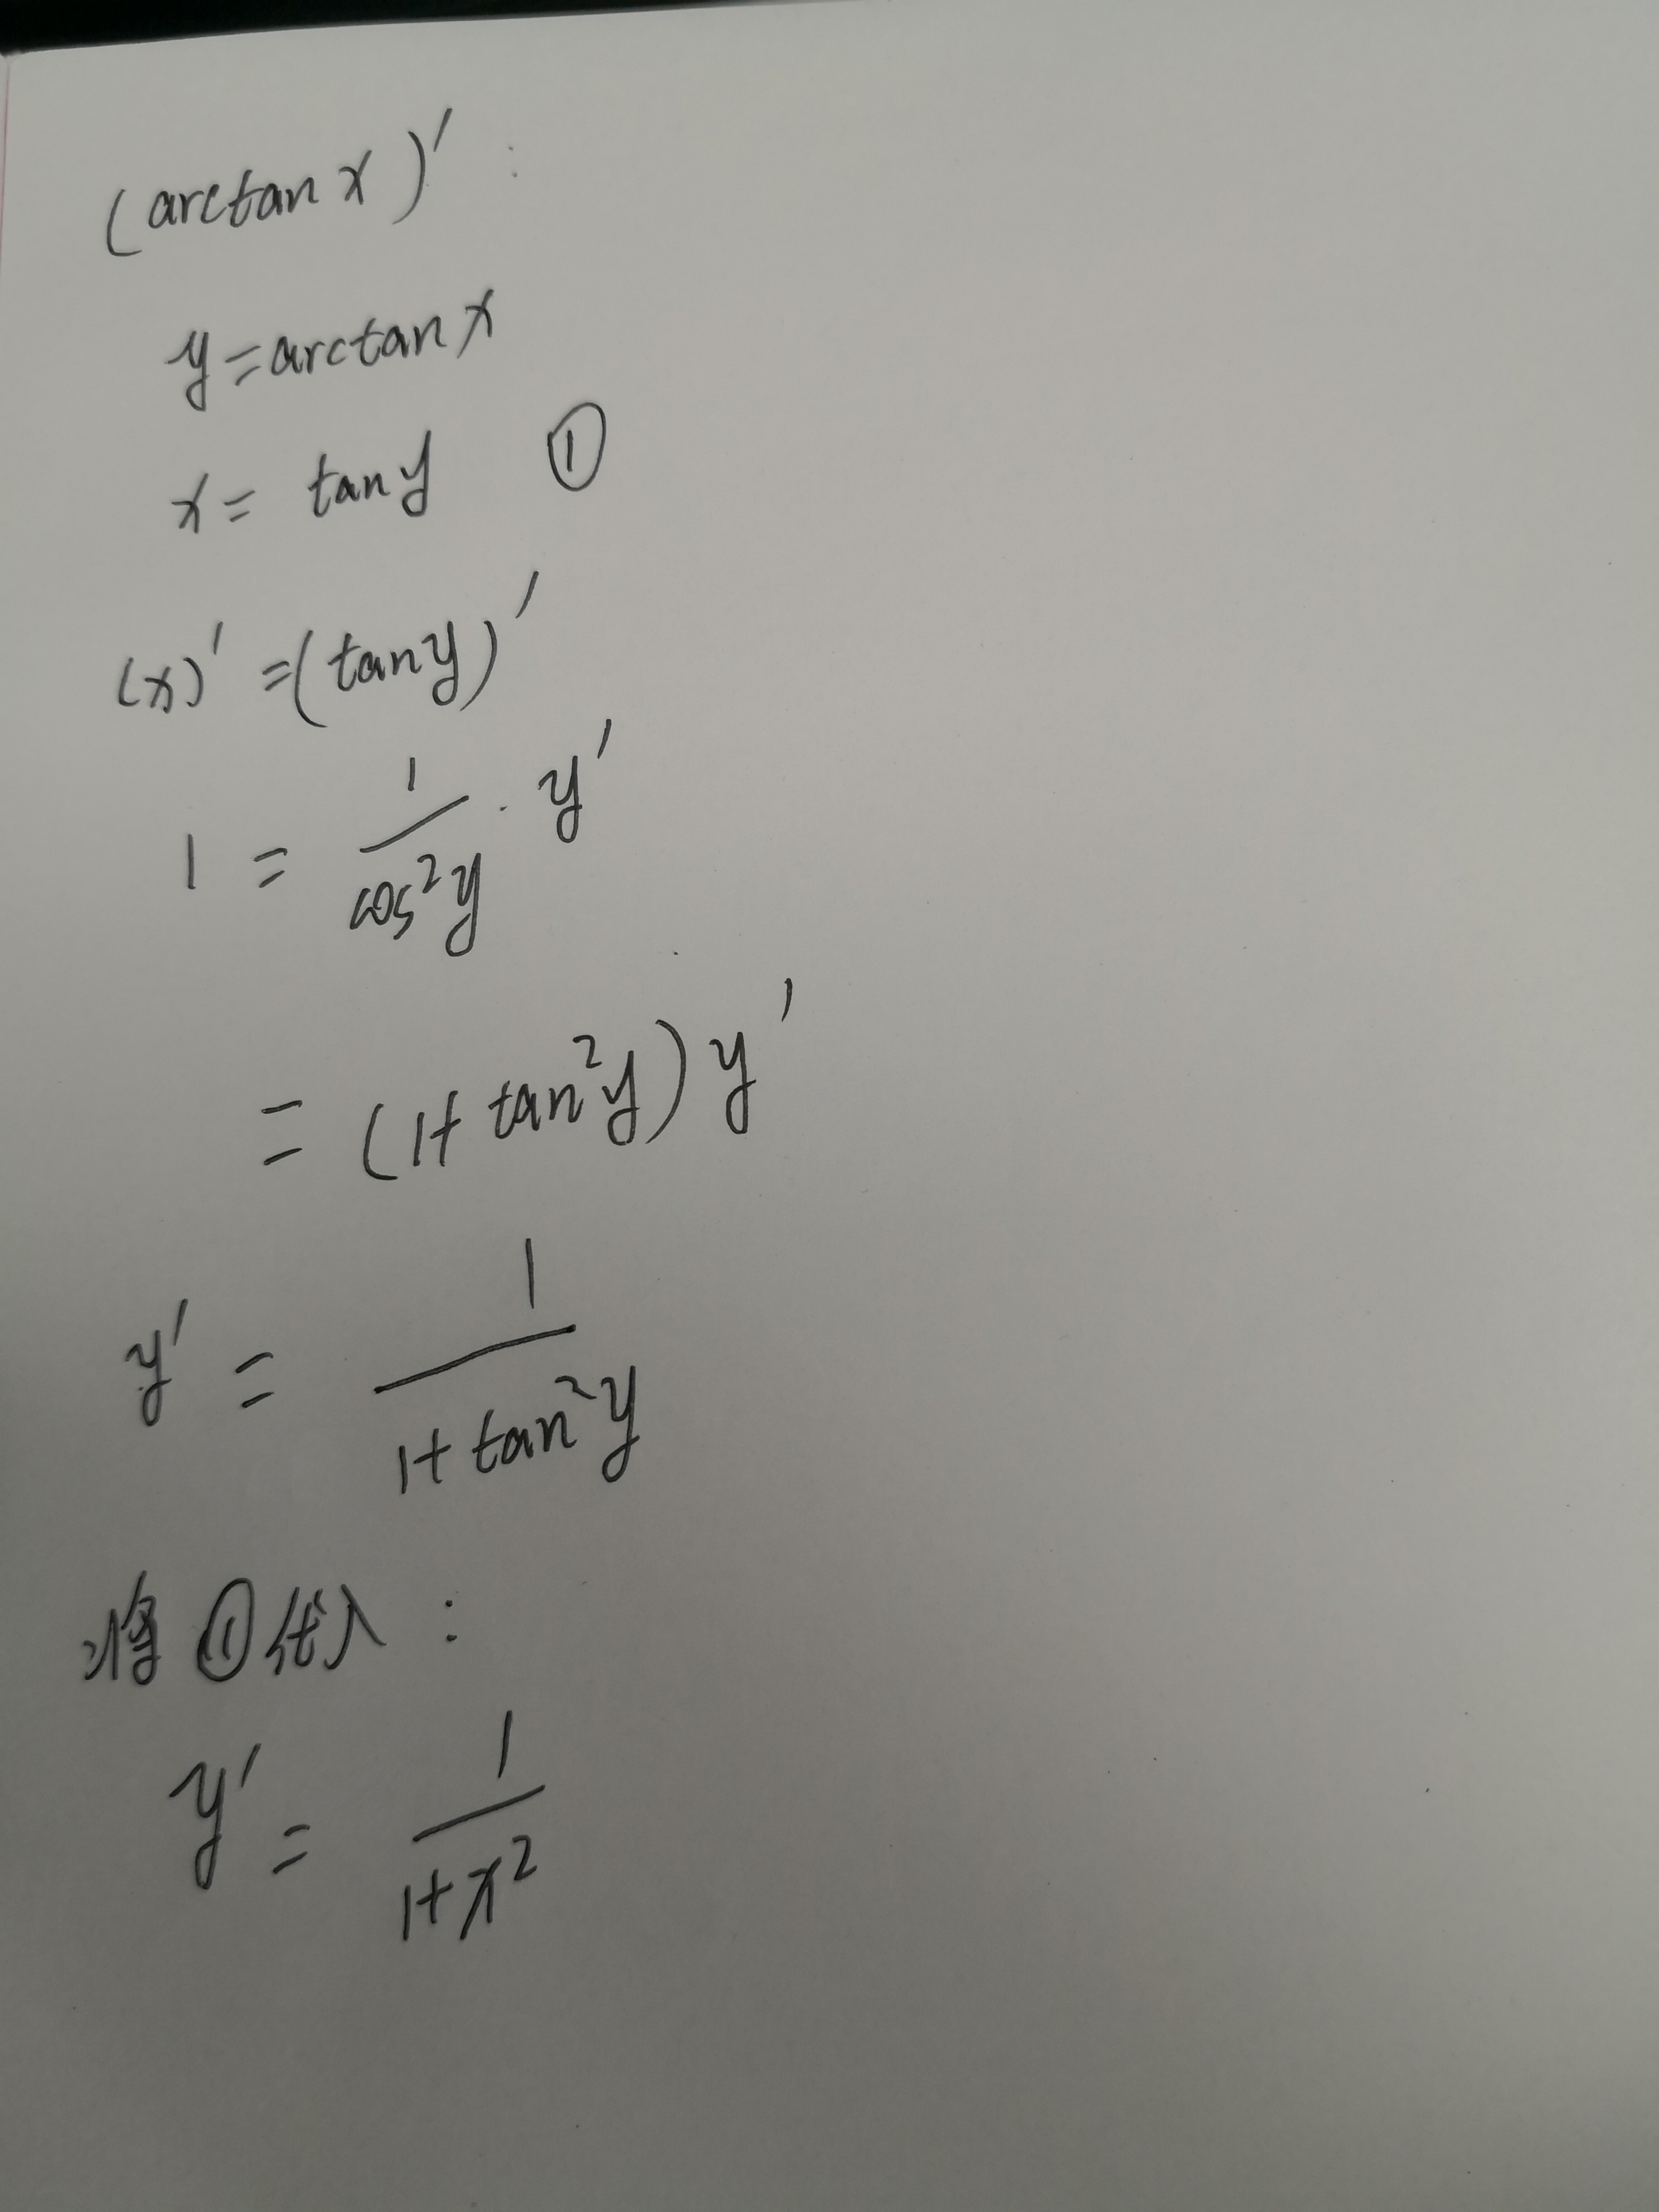 (arctan x)′ :
y = arctan x
x = tan y ①
(x)′ = (tan y)′
1 = 1/cos²y · y′
= (1 + tan²y) y′
y′ = 1/(1 + tan²y)
将①代入：
y′ = 1/(1 + x²)